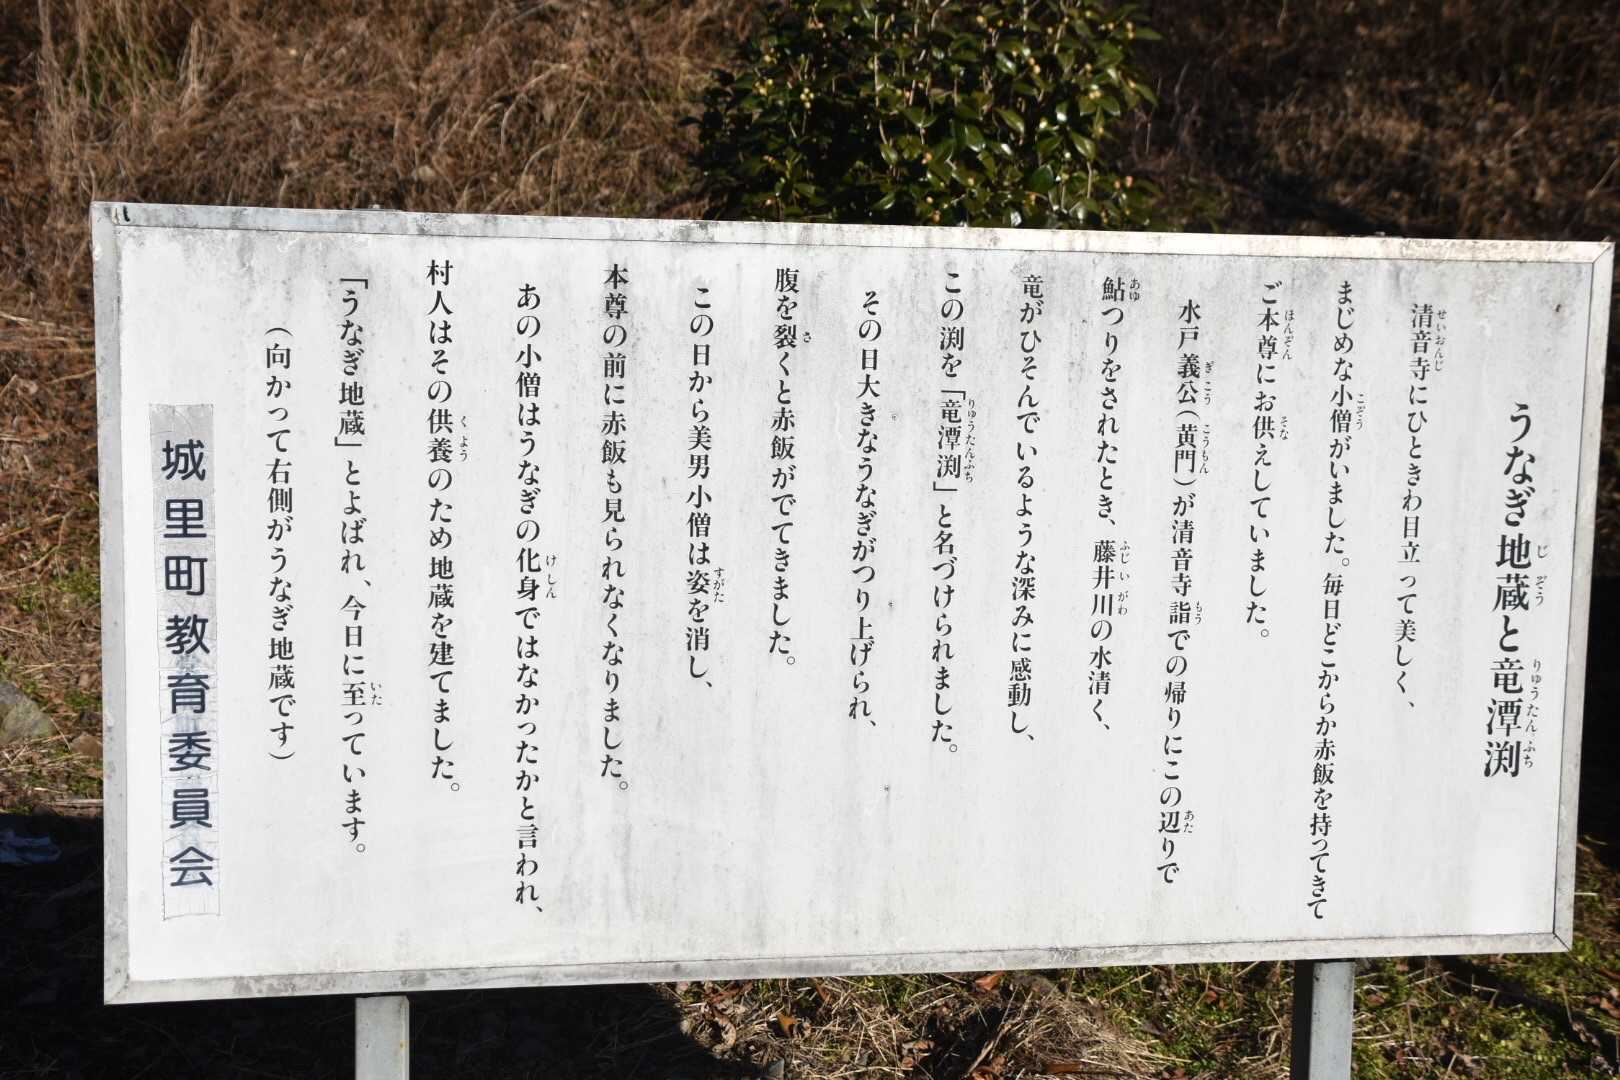 うなぎ地蔵と竜潭渕
清音寺にひときわ目立って美しく、
まじめな小僧がいました。毎日どこからか赤飯を持ってきて
ご本尊にお供えしていました。
水戸義公(黄門)が清音寺詣での帰りにこの辺りで
鮎つりをされたとき、藤井川の水清く、
竜がひそんでいるような深みに感動し、
この渕を「竜潭渕」と名づけられました。
その日大きなうなぎがつり上げられ、
腹を裂くと赤飯がでてきました。
この日から美男小僧は姿を消し、
本尊の前に赤飯も見られなくなりました。
あの小僧はうなぎの化身ではなかったかと言われ、
村人はその供養のため地蔵を建てました。
「うなぎ地蔵」とよばれ、今日に至っています。
(向かって右側がうなぎ地蔵です)
城里町教育委員会